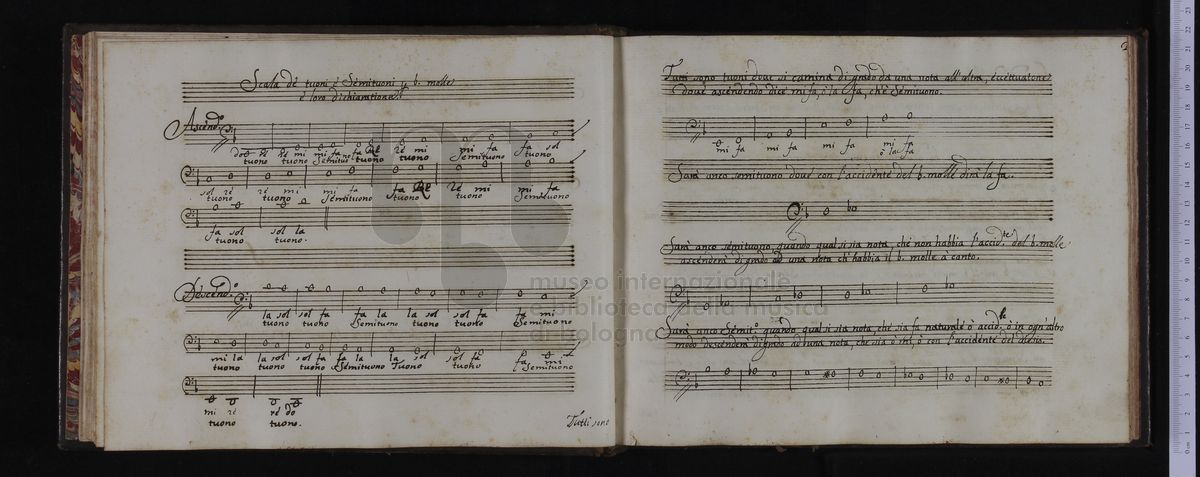 Scala de tuoni, e Semituoni p b. molle
e loro dichiaratione.
Ascend:
do re re mi mi fa fa re mi mi fa fa sol
tuono tuono Semituo tuono tuono Semituono tuono
sol re re mi mi fa fa re mi mi fa
tuono tuono Semituono tuono tuono Semituono
fa sol sol la
tuono tuono.
Descend:
la sol sol fa fa la la sol sol fa fa mi
tuono tuono Semituono tuono tuono Semituono
mi la la sol sol fa fa la la sol sol fa fa mi
tuono tuono tuono Semituono Tuono tuono Semituono
mi re re do
tuono tuono.
Tutti sono
2
Tutti sono tuoni dove si camina di grado da una nota all'altra, eccettuatone
dove ascendendo dice mi fa, e la fa, ch'è Semituono.
mi fa mi fa mi fa mi fa
ò la fa
Sarà anco semituono dove con l'accidente del b. molle dirà la fa.
Sarà anco semituono quando qual si sia nota, che non habbia l'accid.te del b. molle
ascenderà di grado ad una nota ch'habbia il b. molle a canto.
Sarà anco Semit.o quando qual si sia nota, che sia fa naturale ò accid.le ò in ogn'altro
modo descenderà di grado ad una nota, che sia ò con l'accidente del diesis.
museo internazionale
e biblioteca della musica
di bologna